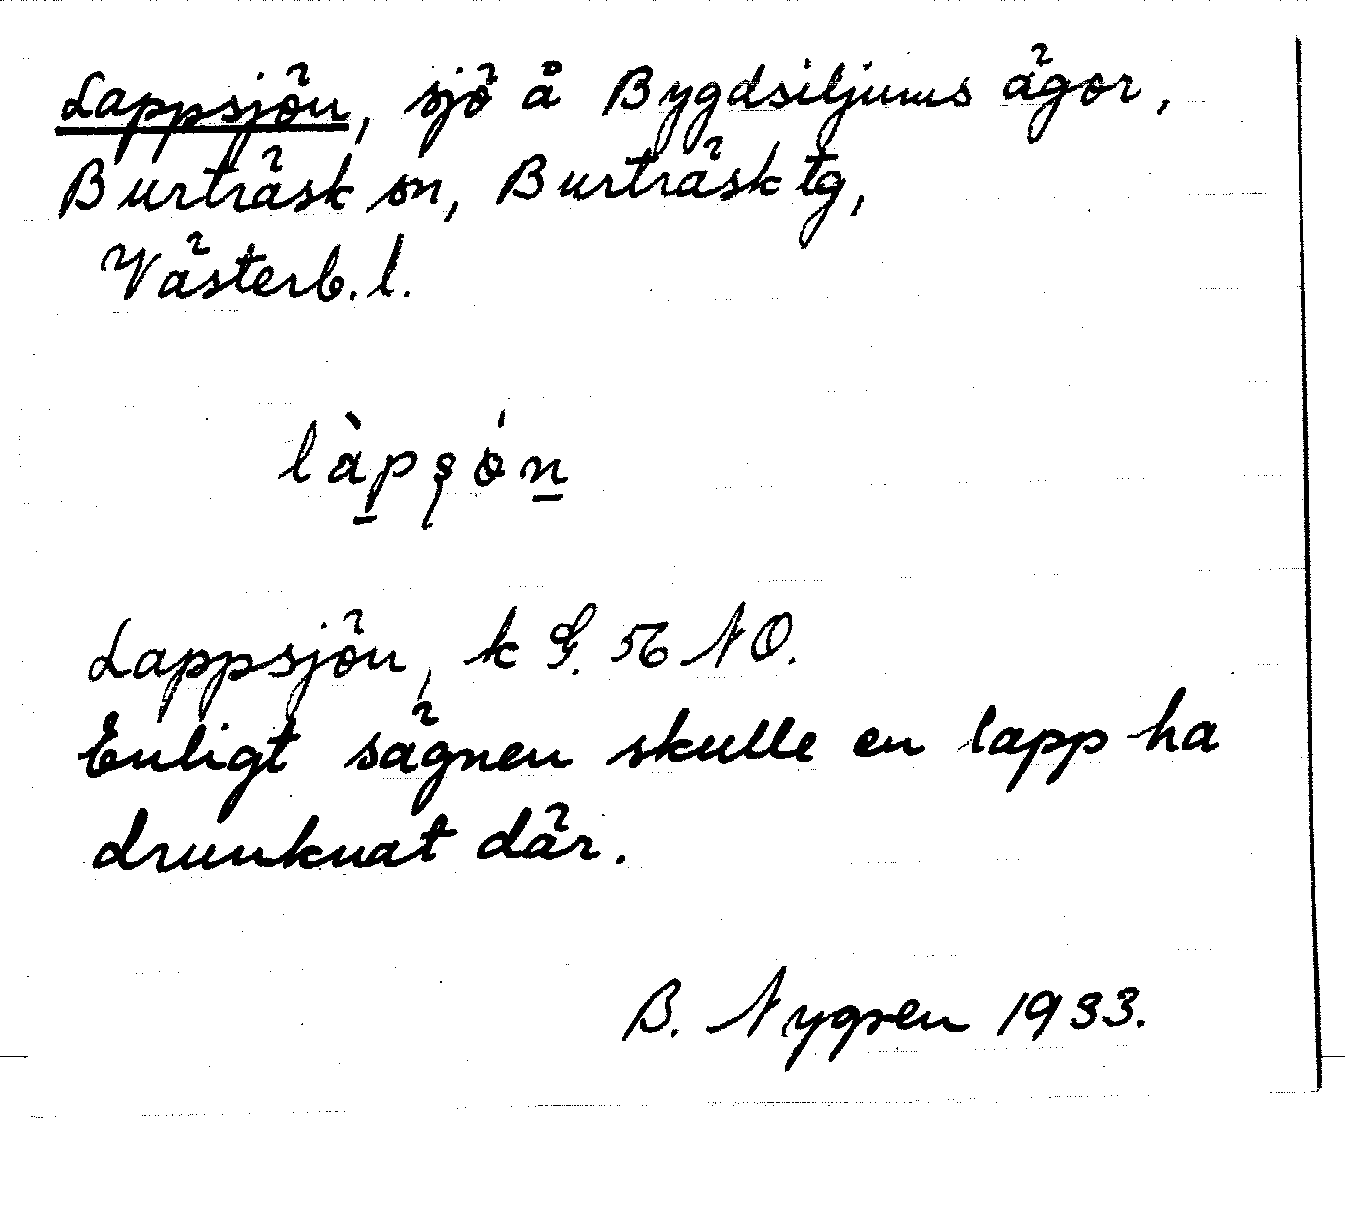 Lappsjön, sjö å Bygdsiljums ägor,
Burträsk sn, Burträsk tg,
Västerb. l.
làpʂón
Lappsjön, k G. 56 NO.
Enligt sägnen skulle en lapp ha
drunknat där.
B. Nygren 1933.